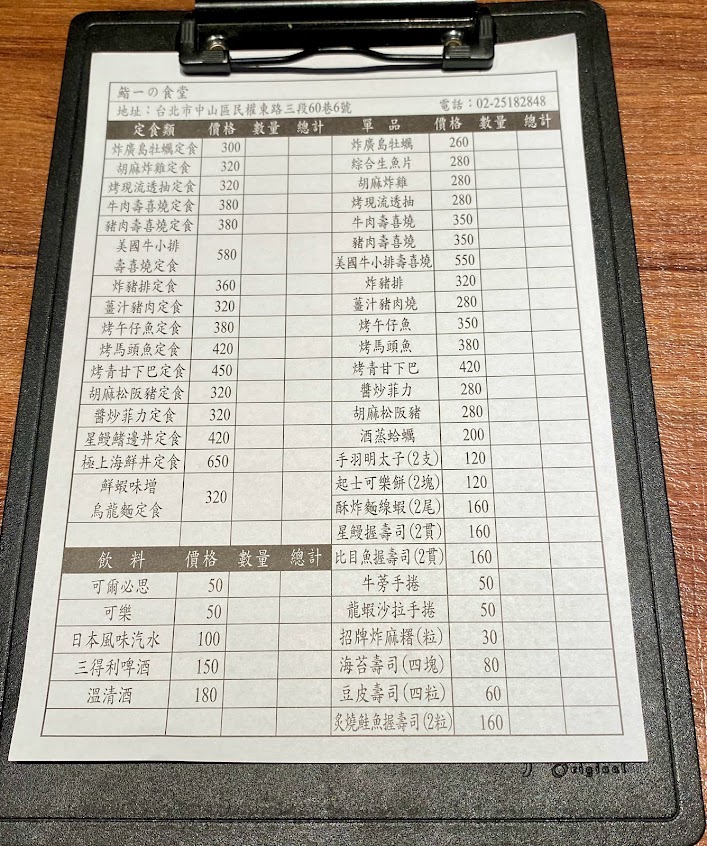 鮨一の食堂
地址：台北市中山區民權東路三段60巷6號 電話：02-25182848
定食類 價格 數量 總計
炸廣島牡蠣定食 300
胡麻炸雞定食 320
烤現流透抽定食 320
牛肉壽喜燒定食 380
豬肉壽喜燒定食 380
美國牛小排
壽喜燒定食 580
炸豬排定食 360
薑汁豬肉定食 320
烤午仔魚定食 380
烤馬頭魚定食 420
烤青甘下巴定食 450
胡麻松阪豬定食 320
醬炒菲力定食 320
星鰻鰭邊丼定食 420
極上海鮮丼定食 650
鮮蝦味增
烏龍麵定食 320
飲料 價格 數量 總計
可爾必思 50
可樂 50
日本風味汽水 100
三得利啤酒 150
溫清酒 180
單品 價格 數量 總計
炸廣島牡蠣 260
綜合生魚片 280
胡麻炸雞 280
烤現流透抽 280
牛肉壽喜燒 350
豬肉壽喜燒 350
美國牛小排壽喜燒 550
炸豬排 320
薑汁豬肉燒 280
烤午仔魚 350
烤馬頭魚 380
烤青甘下巴 420
醬炒菲力 280
胡麻松阪豬 280
酒蒸蛤蠣 200
手羽明太子(2支) 120
起士可樂餅(2塊) 120
酥炸麵線蝦(2尾) 160
星鰻握壽司(2貫) 160
比目魚握壽司(2貫) 160
牛蒡手捲 50
龍蝦沙拉手捲 50
招牌炸麻糬(粒) 30
海苔壽司(四塊) 80
豆皮壽司(四粒) 60
炙燒鮭魚握壽司(2粒) 160
Original